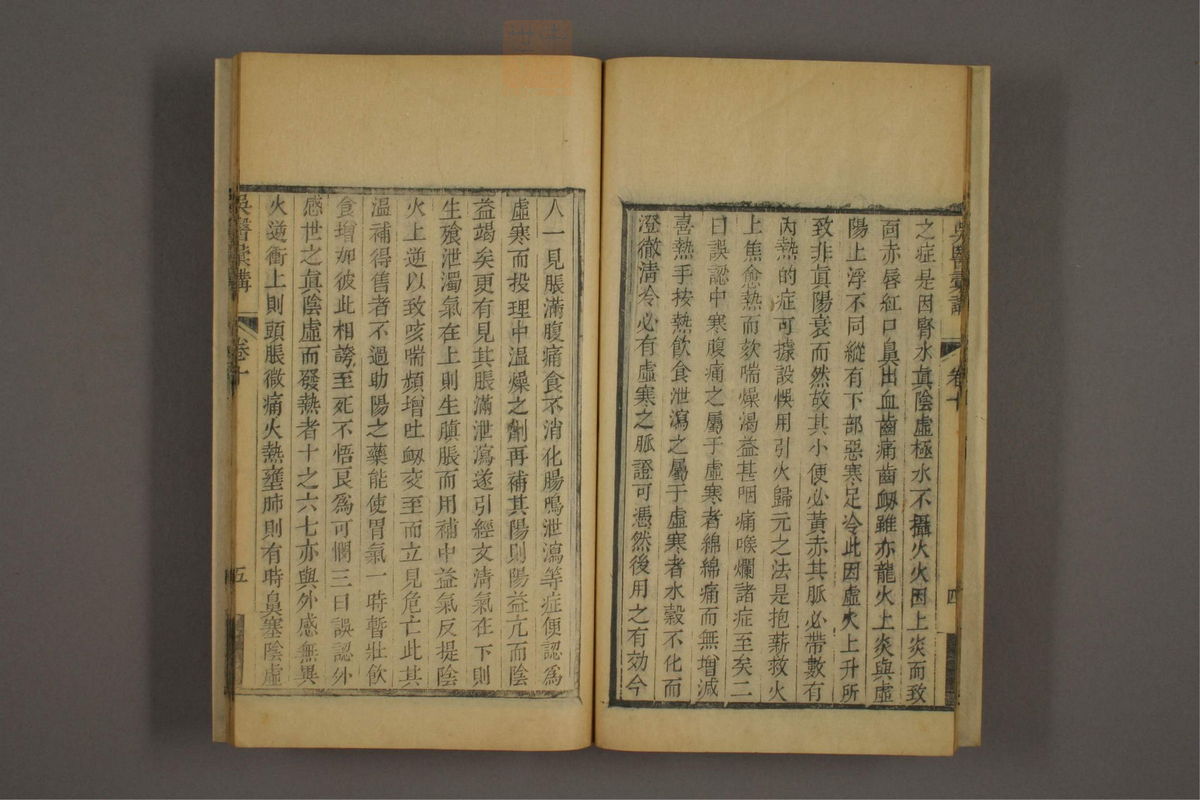 吳醫彙講
卷十
四
之症是因腎水真陰虛極水不攝火火因上炎而致
面赤唇紅口鼻出血齒痛齒衄雖亦龍火上炎與虛
陽上浮不同縱有下部惡寒足冷此因虛火上升所
致非真陽衰而然故其小便必黃赤其脈必帶數有
內熱的症可據設悞用引火歸元之法是抱薪救火
上焦愈熱而欬喘燥渴益甚咽痛喉爛諸症至矣二
曰誤認中寒腹痛之屬于虛寒者綿綿痛而無增減
喜熱手按熱飲食泄瀉之屬于虛寒者水穀不化而
澄徹清冷必有虛寒之脈證可憑然後用之有効今
人一見脹滿腹痛食不消化腸鳴泄瀉等症便認爲
虛寒而投理中温燥之劑再補其陽則陽益亢而陰
益竭矣更有見其脹滿泄瀉遂引經文清氣在下則
生飱泄濁氣在上則生䐜脹而用補中益氣反提陰
火上逆以致咳喘頻增吐衄交至而立見危亡此其
温補得售者不過助陽之藥能使胃氣一時暫壯飲
食增加彼此相誇至死不悟良爲可憫三曰誤認外
感世之真陰虛而發熱者十之六七亦與外感無異
火逆衝上則頭脹微痛火熱壅肺則有時鼻塞陰虛
吳醫彙講
卷十
五